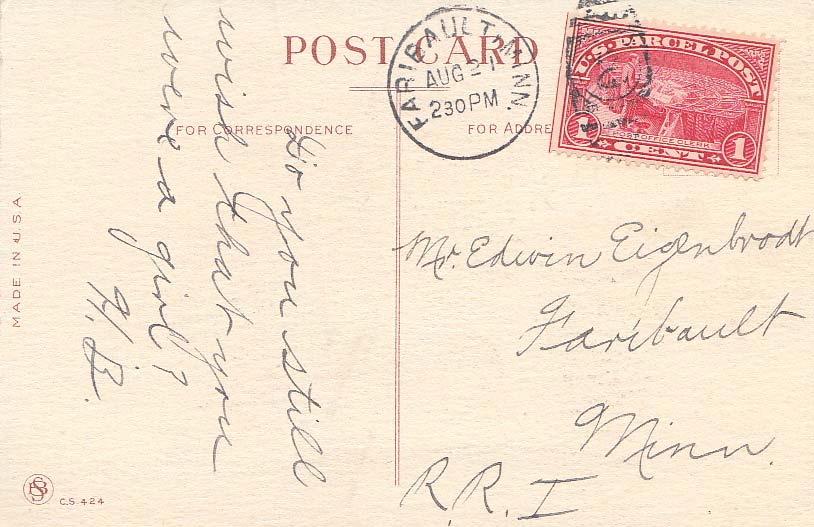 POST CARD
FOR CORRESPONDENCE
FOR ADDRE
FARIBAULT, MINN.
AUG 27
230 PM
U.S. PARCEL POST
POST OFFICE CLERK
1 CENT 1
Do you still
wish that you
were a girl?
H. B.
Mr. Edwin Eigenbrodt
Faribault
Minn.
R.R. I
MADE IN U.S.A.
C.S. 424